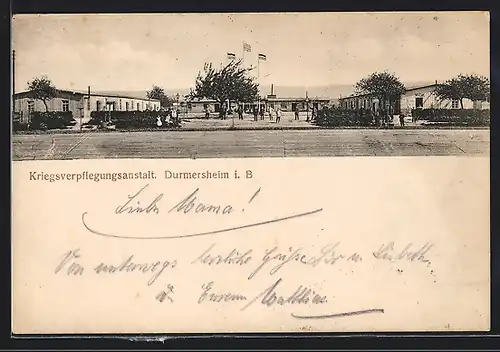 Kriegsverpflegungsanstalt. Durmersheim i. B
Liebe Mama!
Von unterwegs herzliche Grüße Dir u. Liesbeth
v. Eurem Matthias